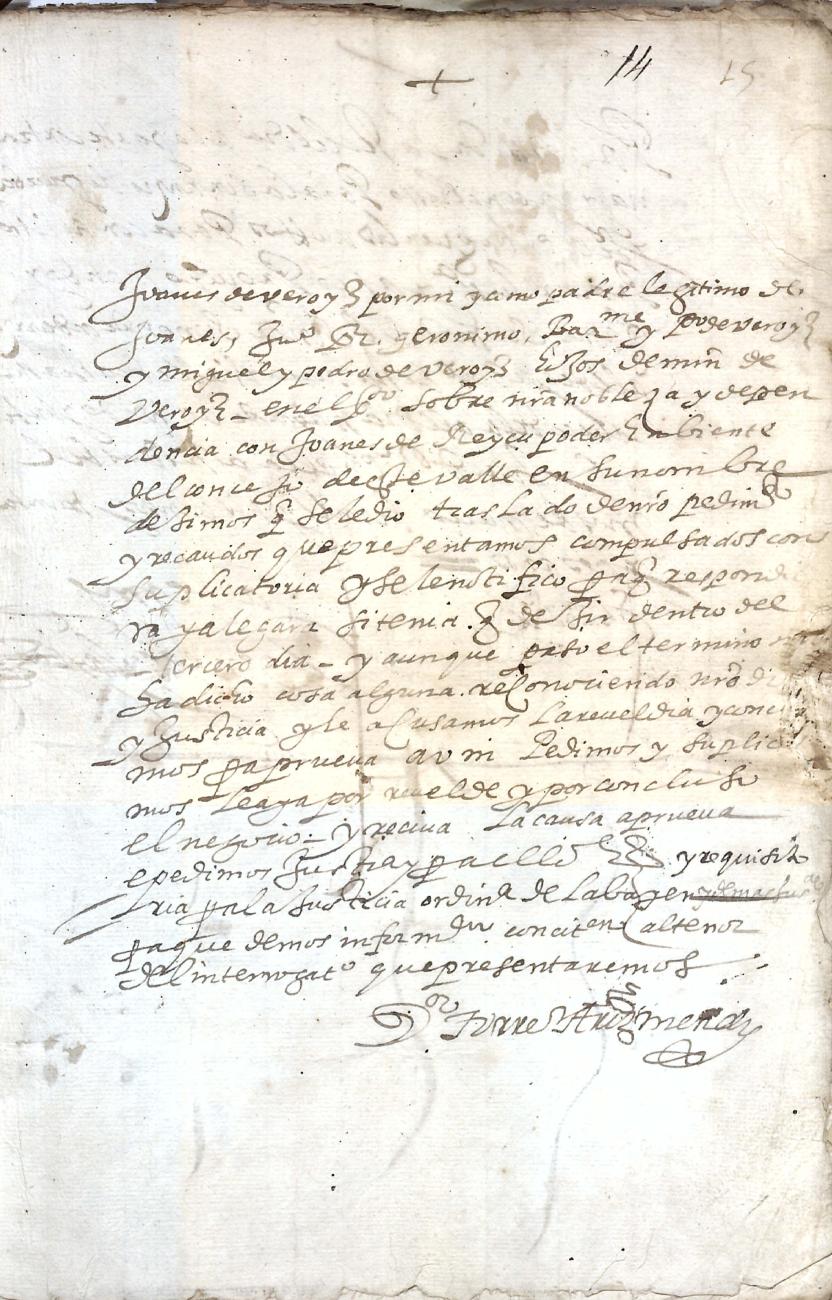 + 14 15
Joanes de veroyz por mi y como padre legitimo de
Joanes, Juo geronimo, Barme y po de veroyz
y miguel y pedro de veroyz hijos de min de
veroyz en el sobre nra nobleza y depen
dencia con Joanes de poder
del concejo deeste valle en su nombre
desimos q se le dio traslado de nro pedimto
y recaudos que presentamos compulsados con
suplicatoria y se le notifico pa q respondie
ra y alegara si tenia q desir dentro del
tercero dia y aunque paso el termino no
ha dicho cosa alguna reconociendo nro
y Justicia y le acusamos la reveldia y conclui
mos pa prueva a v m Pedimos y suplica
mos le aya por revelde y por concluso
el negocio y reciva la causa a prueva
e pedimos Justia y pa ello y requisito
ria pa la Justicia ordina de Labayen
pa que demos informon con citon al tenor
del interrogato que presentaremos
Dor